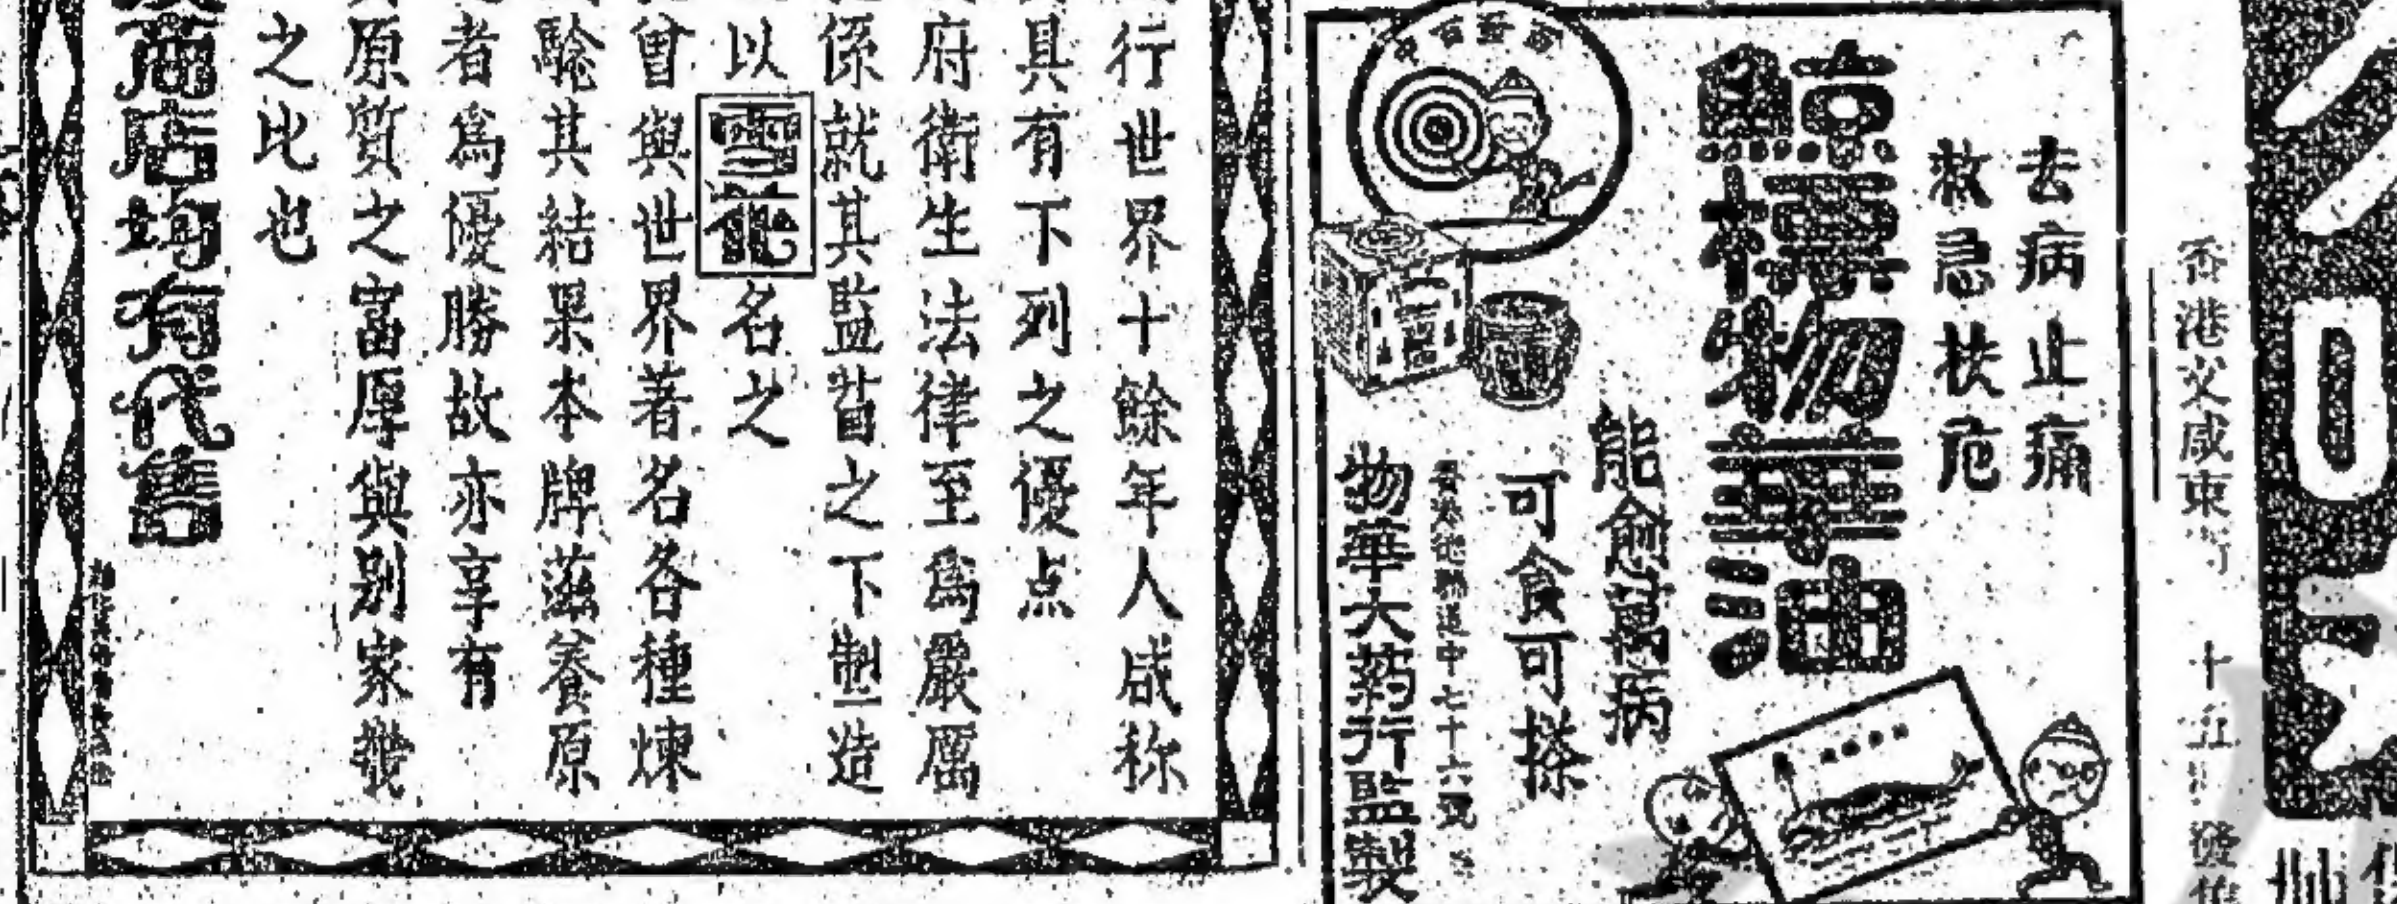 香港父咸東街
十五
去病止痛
救急扶危
鯨標物華油
能愈萬病
可食可搽
香港德輔道中七十六號
物華大葯行監製
百發百中
行世界十餘年人咸称
具有下列之優点
府衛生法律至爲嚴厲
係就其監督之下製造
以雪花名之
曾與世界著名各種煉
驗其結果本牌滋養原
者爲優勝故亦享有
原質之富厚與別家
之比也
商店均有代售